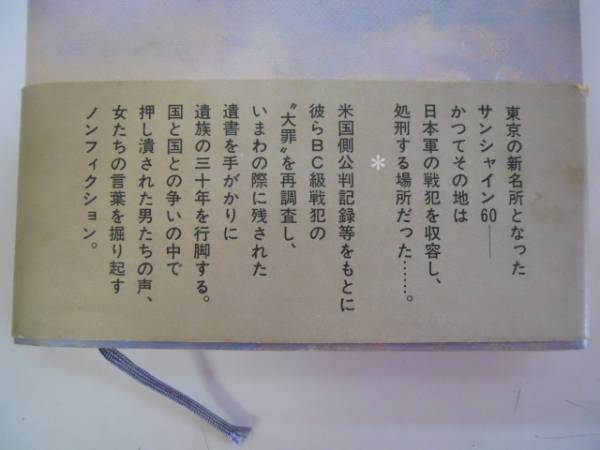 東京の新名所となった
サンシャイン60——
かつてその地は
日本軍の戦犯を収容し、
処刑する場所だった……。
＊
米国側公判記録等をもとに
彼らＢＣ級戦犯の
〝大罪〟を再調査し、
いまわの際に残された
遺書を手がかりに
遺族の三十年を行脚する。
国と国との争いの中で
押し潰された男たちの声、
女たちの言葉を掘り起す
ノンフィクション。